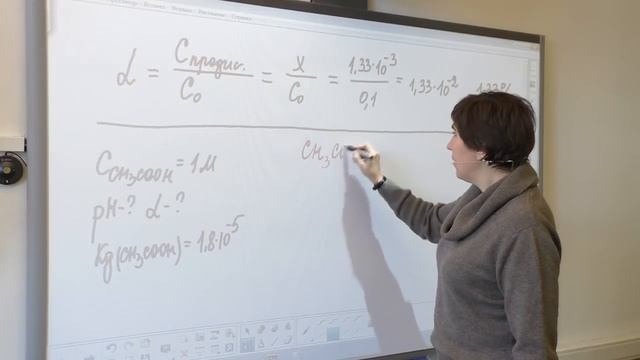 α = Cпродис. / C₀ = x / C₀ = 1,33·10⁻³ / 0,1 = 1,33·10⁻² 1,33%
C CH₃COOH = 1 M CH₃CO
pH-? α-?
Kд(CH₃COOH) = 1,8·10⁻⁵